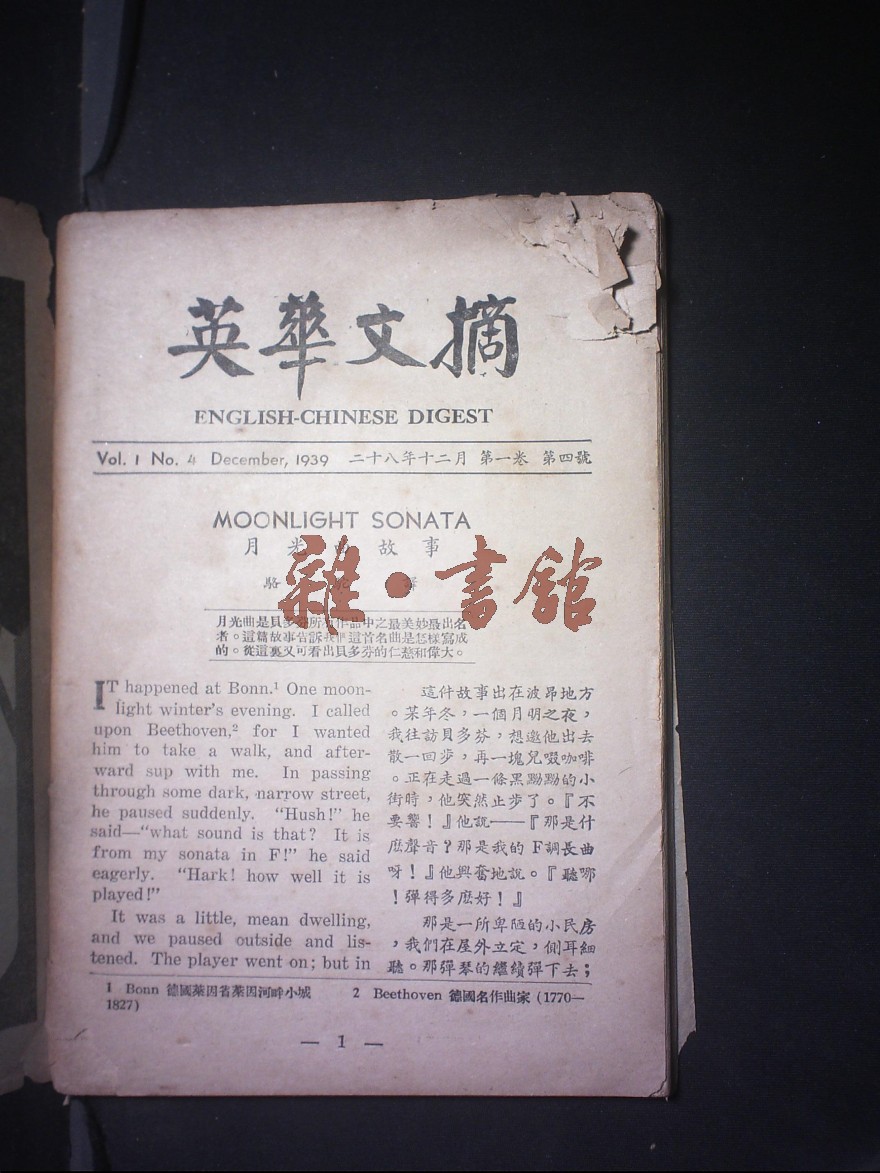 英華文摘
ENGLISH-CHINESE DIGEST
Vol. 1 No. 4 December, 1939 二十八年十二月 第一卷 第四號
MOONLIGHT SONATA
月光曲故事
駱 譯
雜·書館
月光曲是貝多芬所有作品中之最美妙最出名
者。這篇故事告訴我們這首名曲是怎樣寫成
的。從這裏又可看出貝多芬的仁慈和偉大。
IT happened at Bonn.¹ One moon-
light winter's evening. I called
upon Beethoven,² for I wanted
him to take a walk, and after-
ward sup with me. In passing
through some dark, narrow street,
he paused suddenly. "Hush!" he
said—"what sound is that? It is
from my sonata in F!" he said
eagerly. "Hark! how well it is
played!"
It was a little, mean dwelling,
and we paused outside and lis-
tened. The player went on; but in
這件故事出在波昂地方
。某年冬，一個月明之夜，
我往訪貝多芬，想邀他出去
散一回步，再一塊兒啜咖啡
。正在走過一條黑黝黝的小
街時，他突然止步了。『不
要響！』他說——『那是什
麽聲音？那是我的 F調長曲
呀！』他興奮地說。『聽哪
！彈得多麽好！』
那是一所卑陋的小民房
，我們在屋外立定，側耳細
聽。那彈琴的繼續彈下去；
1 Bonn 德國萊因省萊因河畔小城 2 Beethoven 德國名作曲家 (1770—
1827)
— 1 —